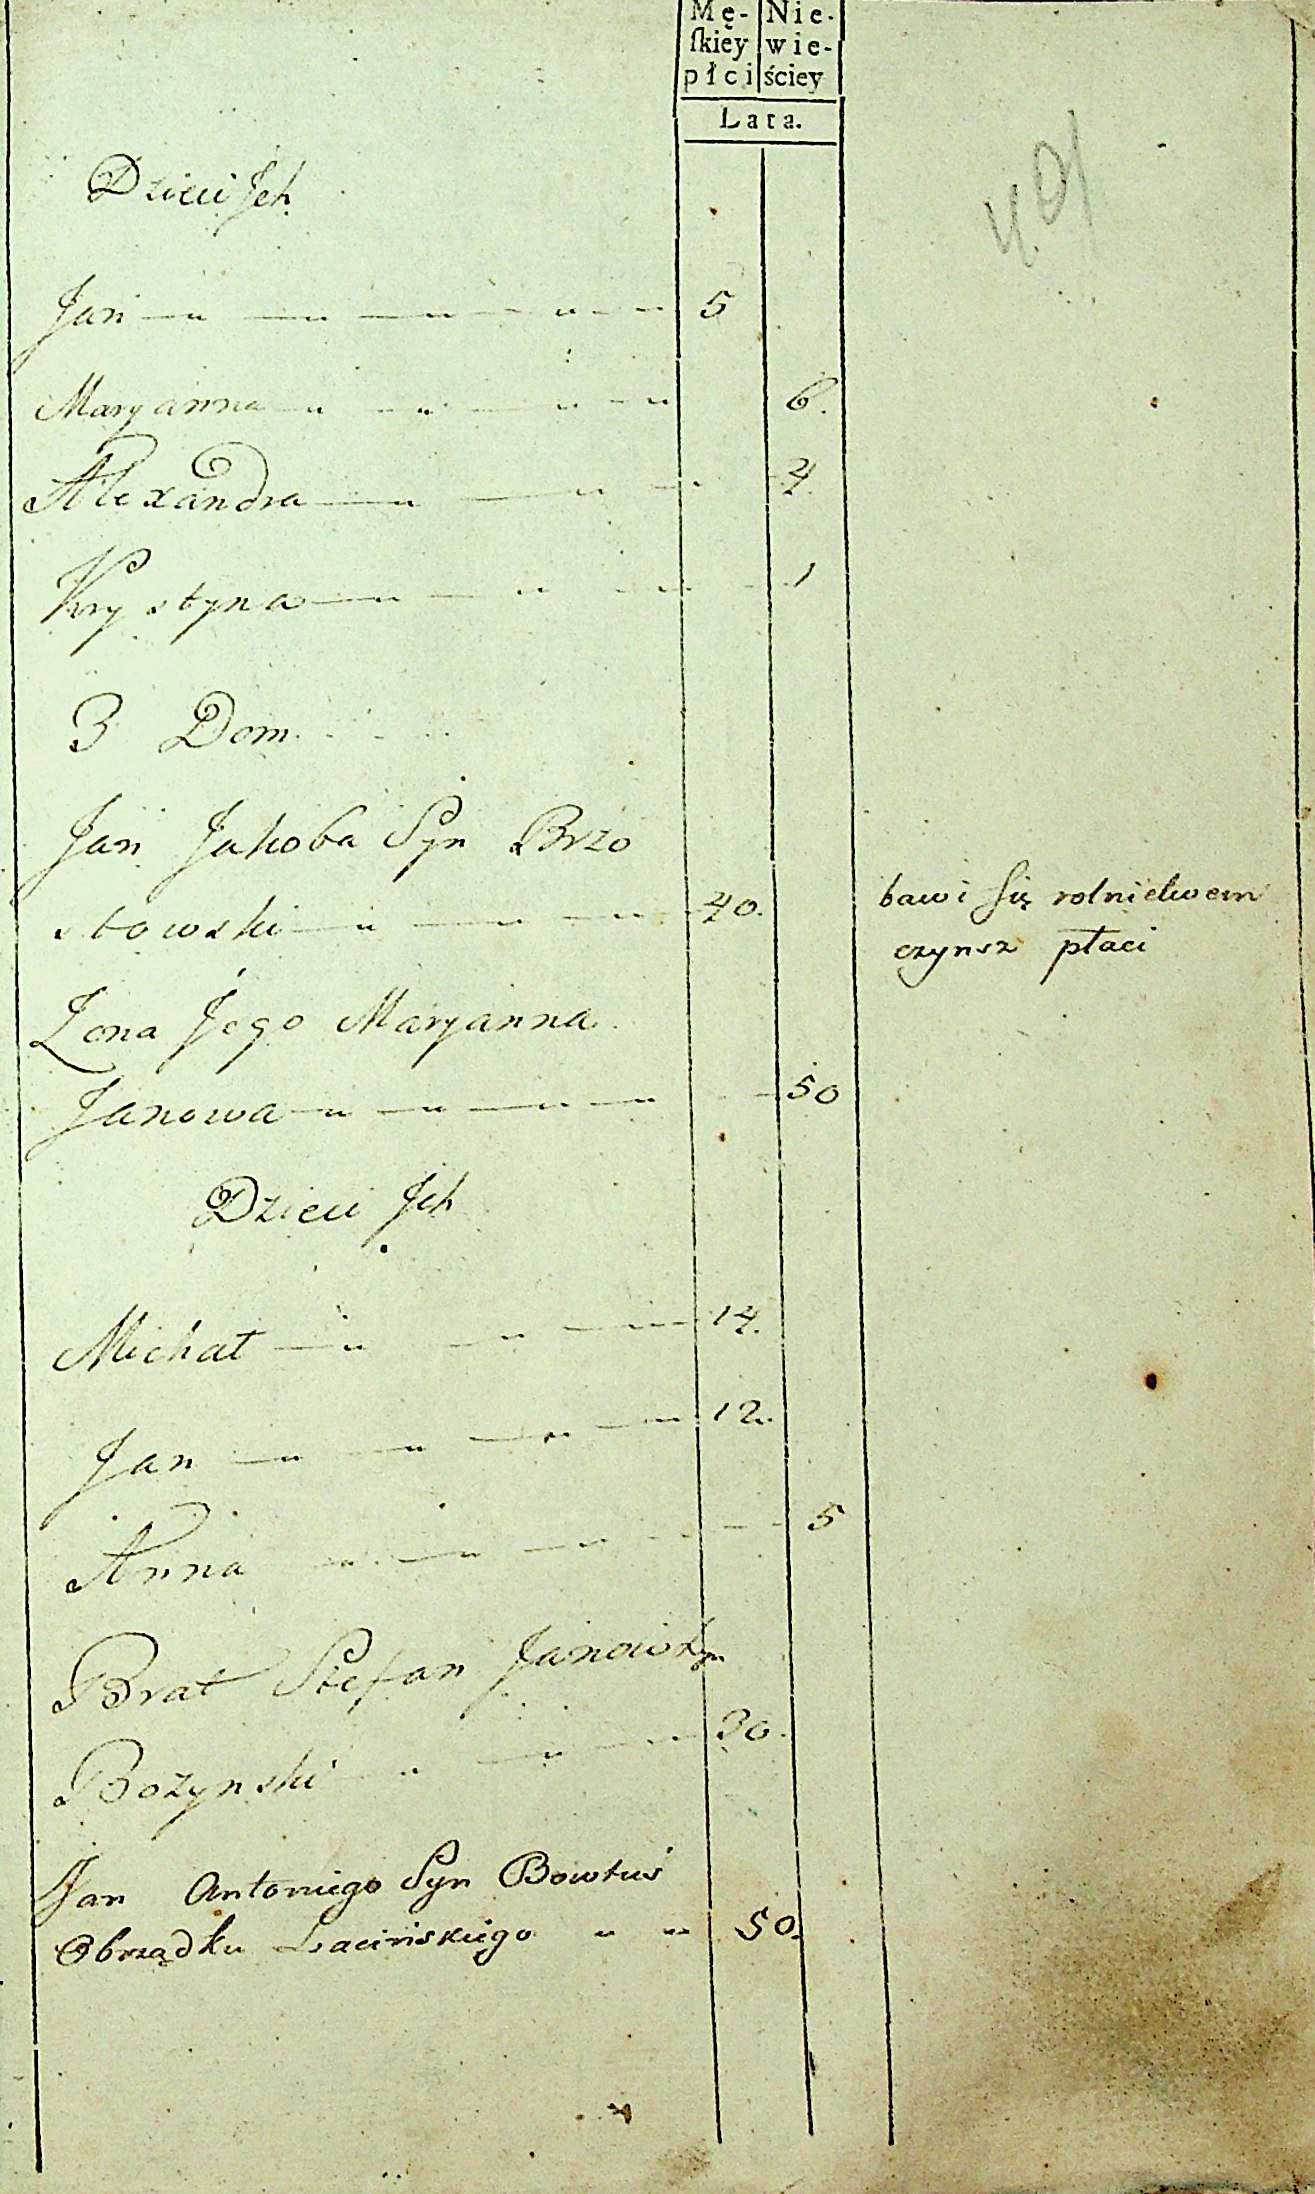 Mę- Nie-
ſkiey wie-
płci ściey
Lata.
Dzieci Jch
Jan 5
Maryanna 6.
Alexandra 4.
Krystyna 1
3 Dom.
Jan Jakoba Syn Brzo
stowski 40. bawi się rolnictwem
czynsz płaci
Żona Jego Maryanna
Janowa 50
Dzieci Jch
Michał 14.
Jan 12.
Anna 5
Brat Stefan
Bożynski 30.
Jan Antoniego Syn
Obrządku Łacińskiego 50.